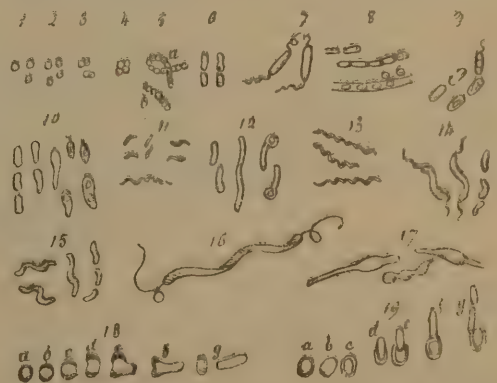 1 2 3 4 5 6 7 8 9
a
a b
10 11 12 13 14
15 16 17
18 19
a b c d e f g
a b c d e f g